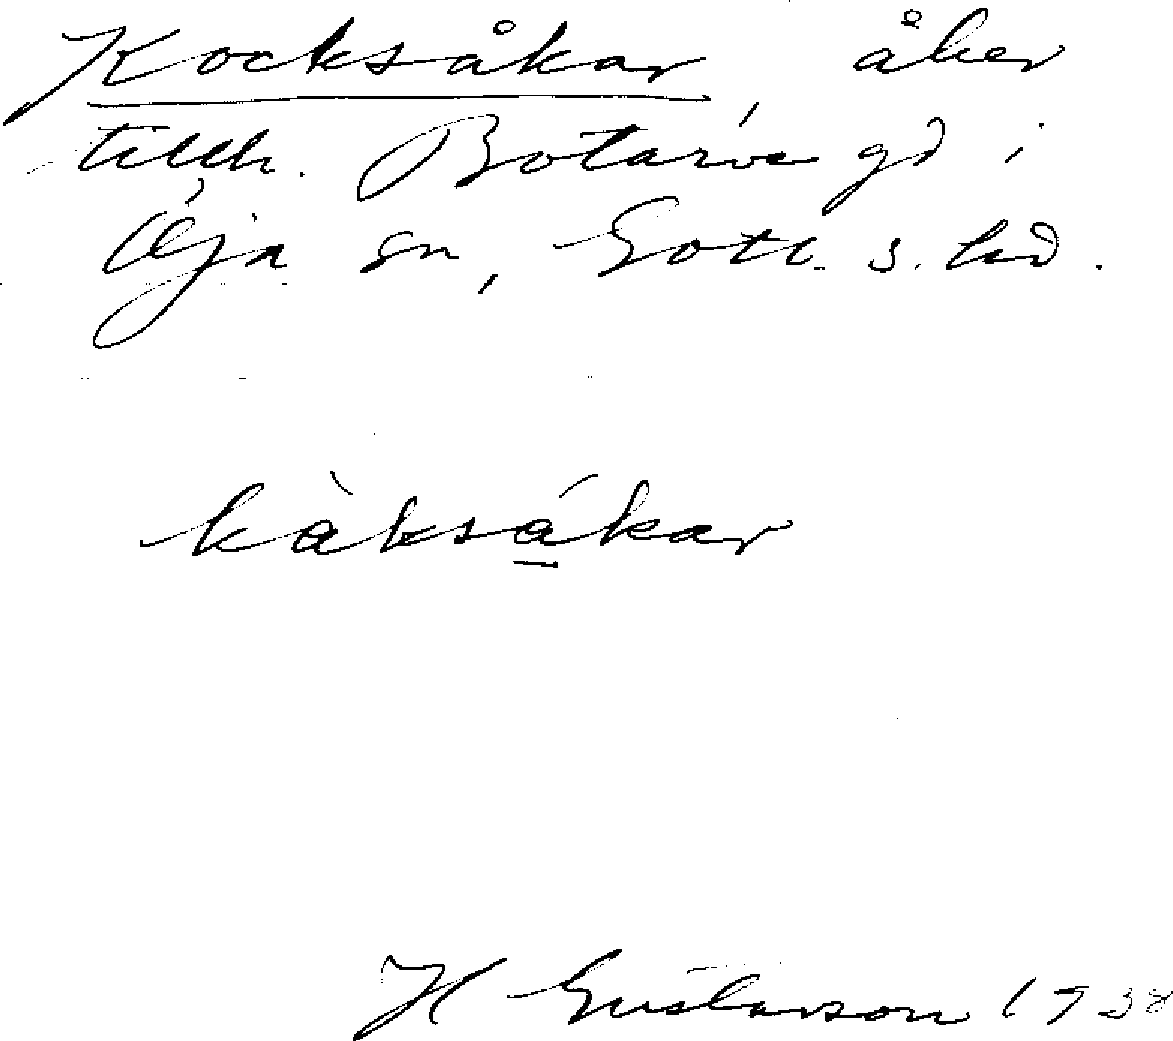 Kocksåkar åker
tillh. Botarve gd i
Öja sn, Gotl. s. hd.
kàksákar
H Gustavson 1938